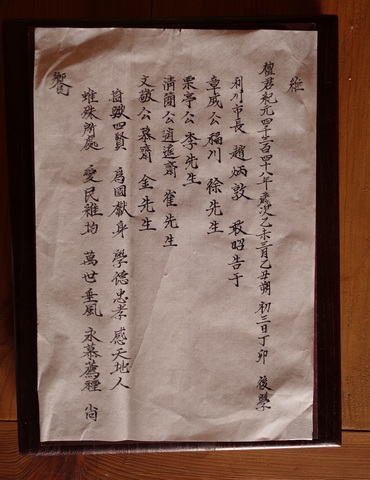 維
檀君紀元四千三百四十八年歲次乙未三月乙丑朔 初三日丁卯 後學
利川市長 趙炳敦 敢昭告于
章威公 福川 徐先生
栗亭公 李先生
淸簡公 逍遙齋 崔先生
文敬公 慕齋 金先生
首獻四賢 爲國獻身 學德忠孝 感天地人
雖殊所處 愛民雖均 萬世垂風 永慕薦禋 尙
饗